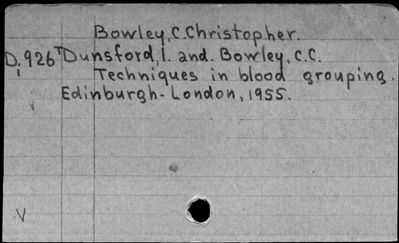 Bowley, C. Christopher.
D. 926 Dunsford, I. and. Bowley, C.C.
Techniques in blood grouping.
Edinburgh-London, 1955.
V
V